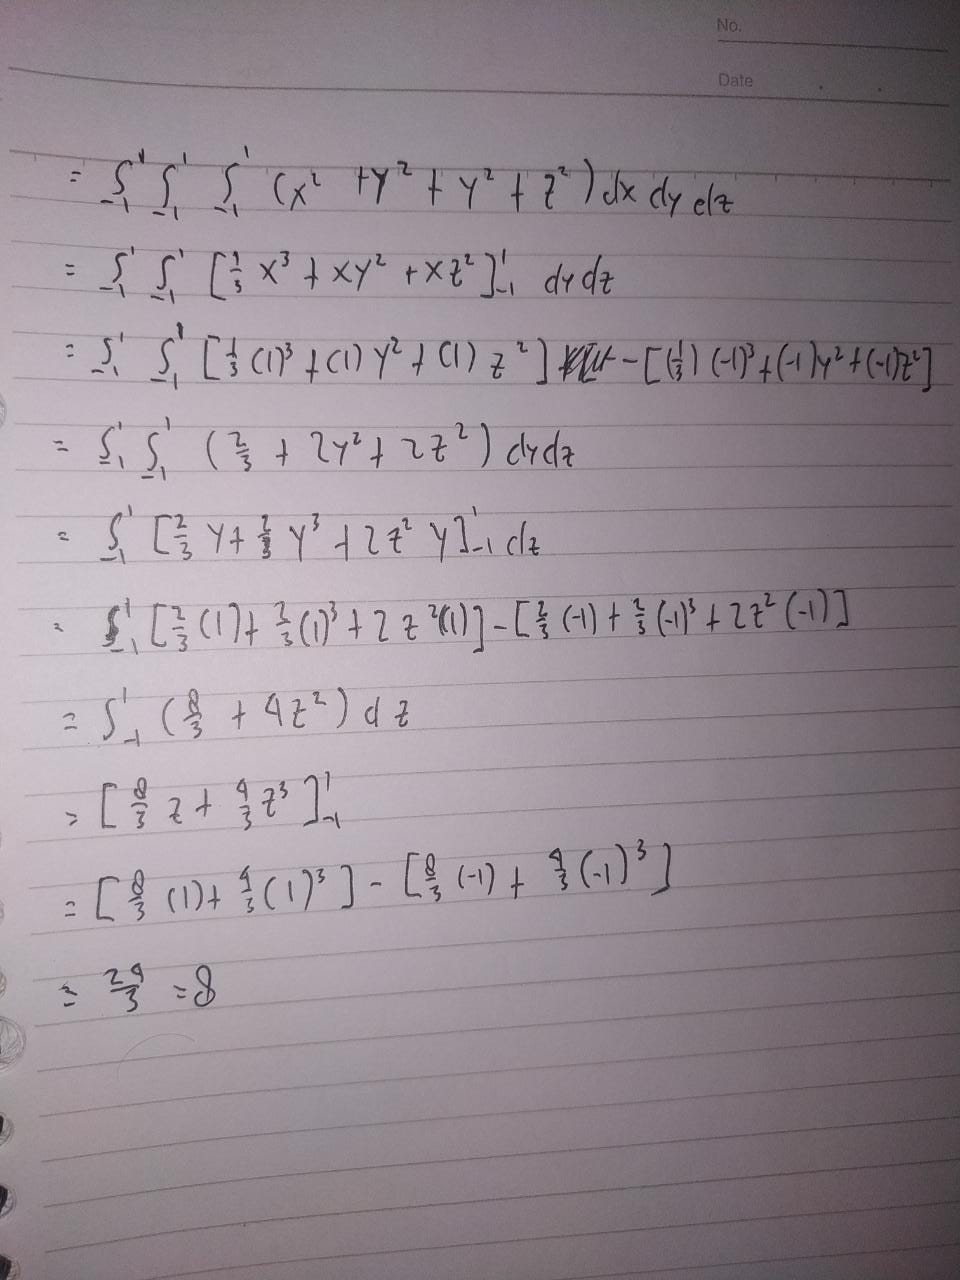 No.
Date
= ∫₋₁¹ ∫₋₁¹ ∫₋₁¹ (x² + y² + y² + z²) dx dy dz
= ∫₋₁¹ ∫₋₁¹ [1/3 x³ + xy² + xz²]₋₁¹ dy dz
= ∫₋₁¹ ∫₋₁¹ [1/3 (1)³ + (1) y² + (1) z²] - [(1/3) (-1)³ + (-1)y² + (-1)z²]
= ∫₋₁¹ ∫₋₁¹ (2/3 + 2y² + 2z²) dy dz
= ∫₋₁¹ [2/3 y + 2/3 y³ + 2z² y]₋₁¹ dz
= ∫₋₁¹ [2/3 (1) + 2/3 (1)³ + 2z²(1)] - [2/3 (-1) + 2/3 (-1)³ + 2z² (-1)]
= ∫₋₁¹ (8/3 + 4z²) dz
= [8/3 z + 4/3 z³]₋₁¹
= [8/3 (1) + 4/3 (1)³] - [8/3 (-1) + 4/3 (-1)³]
= 24/3 = 8